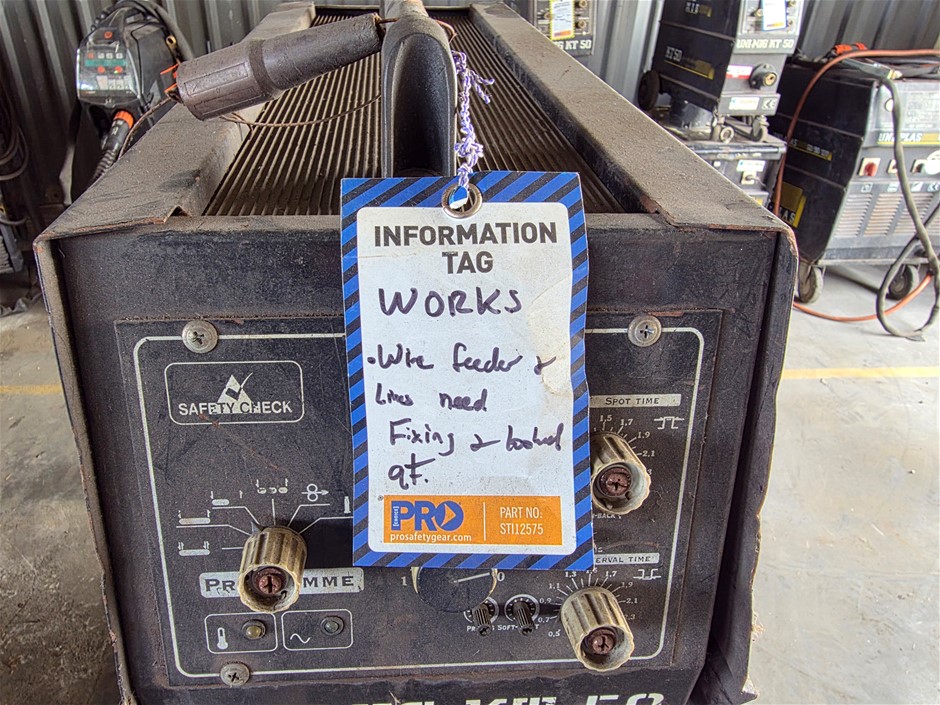 KT 50
UNI-MIG KT 50
KT50
UNI-PLAS
INFORMATION
TAG
WORKS
• Wire feeder &
lines need
Fixing & looked
at.
[CHOICE] PRO
prosafetygear.com
PART NO:
STI12575
SAFETY CHECK
SPOT TIME
1.5 1.7 1.9 2.1
PROGRAMME
1 0
SOFT
INTERVAL TIME
0.5 0.7 0.9 1.1 1.3 1.7 1.9 2.1